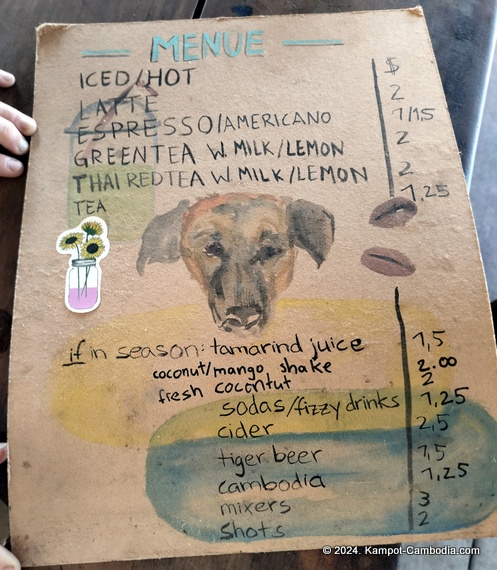 MENUE
ICED/HOT $
LATTE 2
ESPRESSO/AMERICANO 1/1,5
GREENTEA W. MILK/LEMON 2
THAI REDTEA W. MILK/LEMON 2
TEA 1,25
if in season: tamarind juice 1,5
coconut/mango shake 2.00
fresh cocontut 2
sodas/fizzy drinks 1,25
cider 2,5
tiger beer 1,5
cambodia 1,25
mixers 3
shots 2
© 2024. Kampot-Cambodia.com